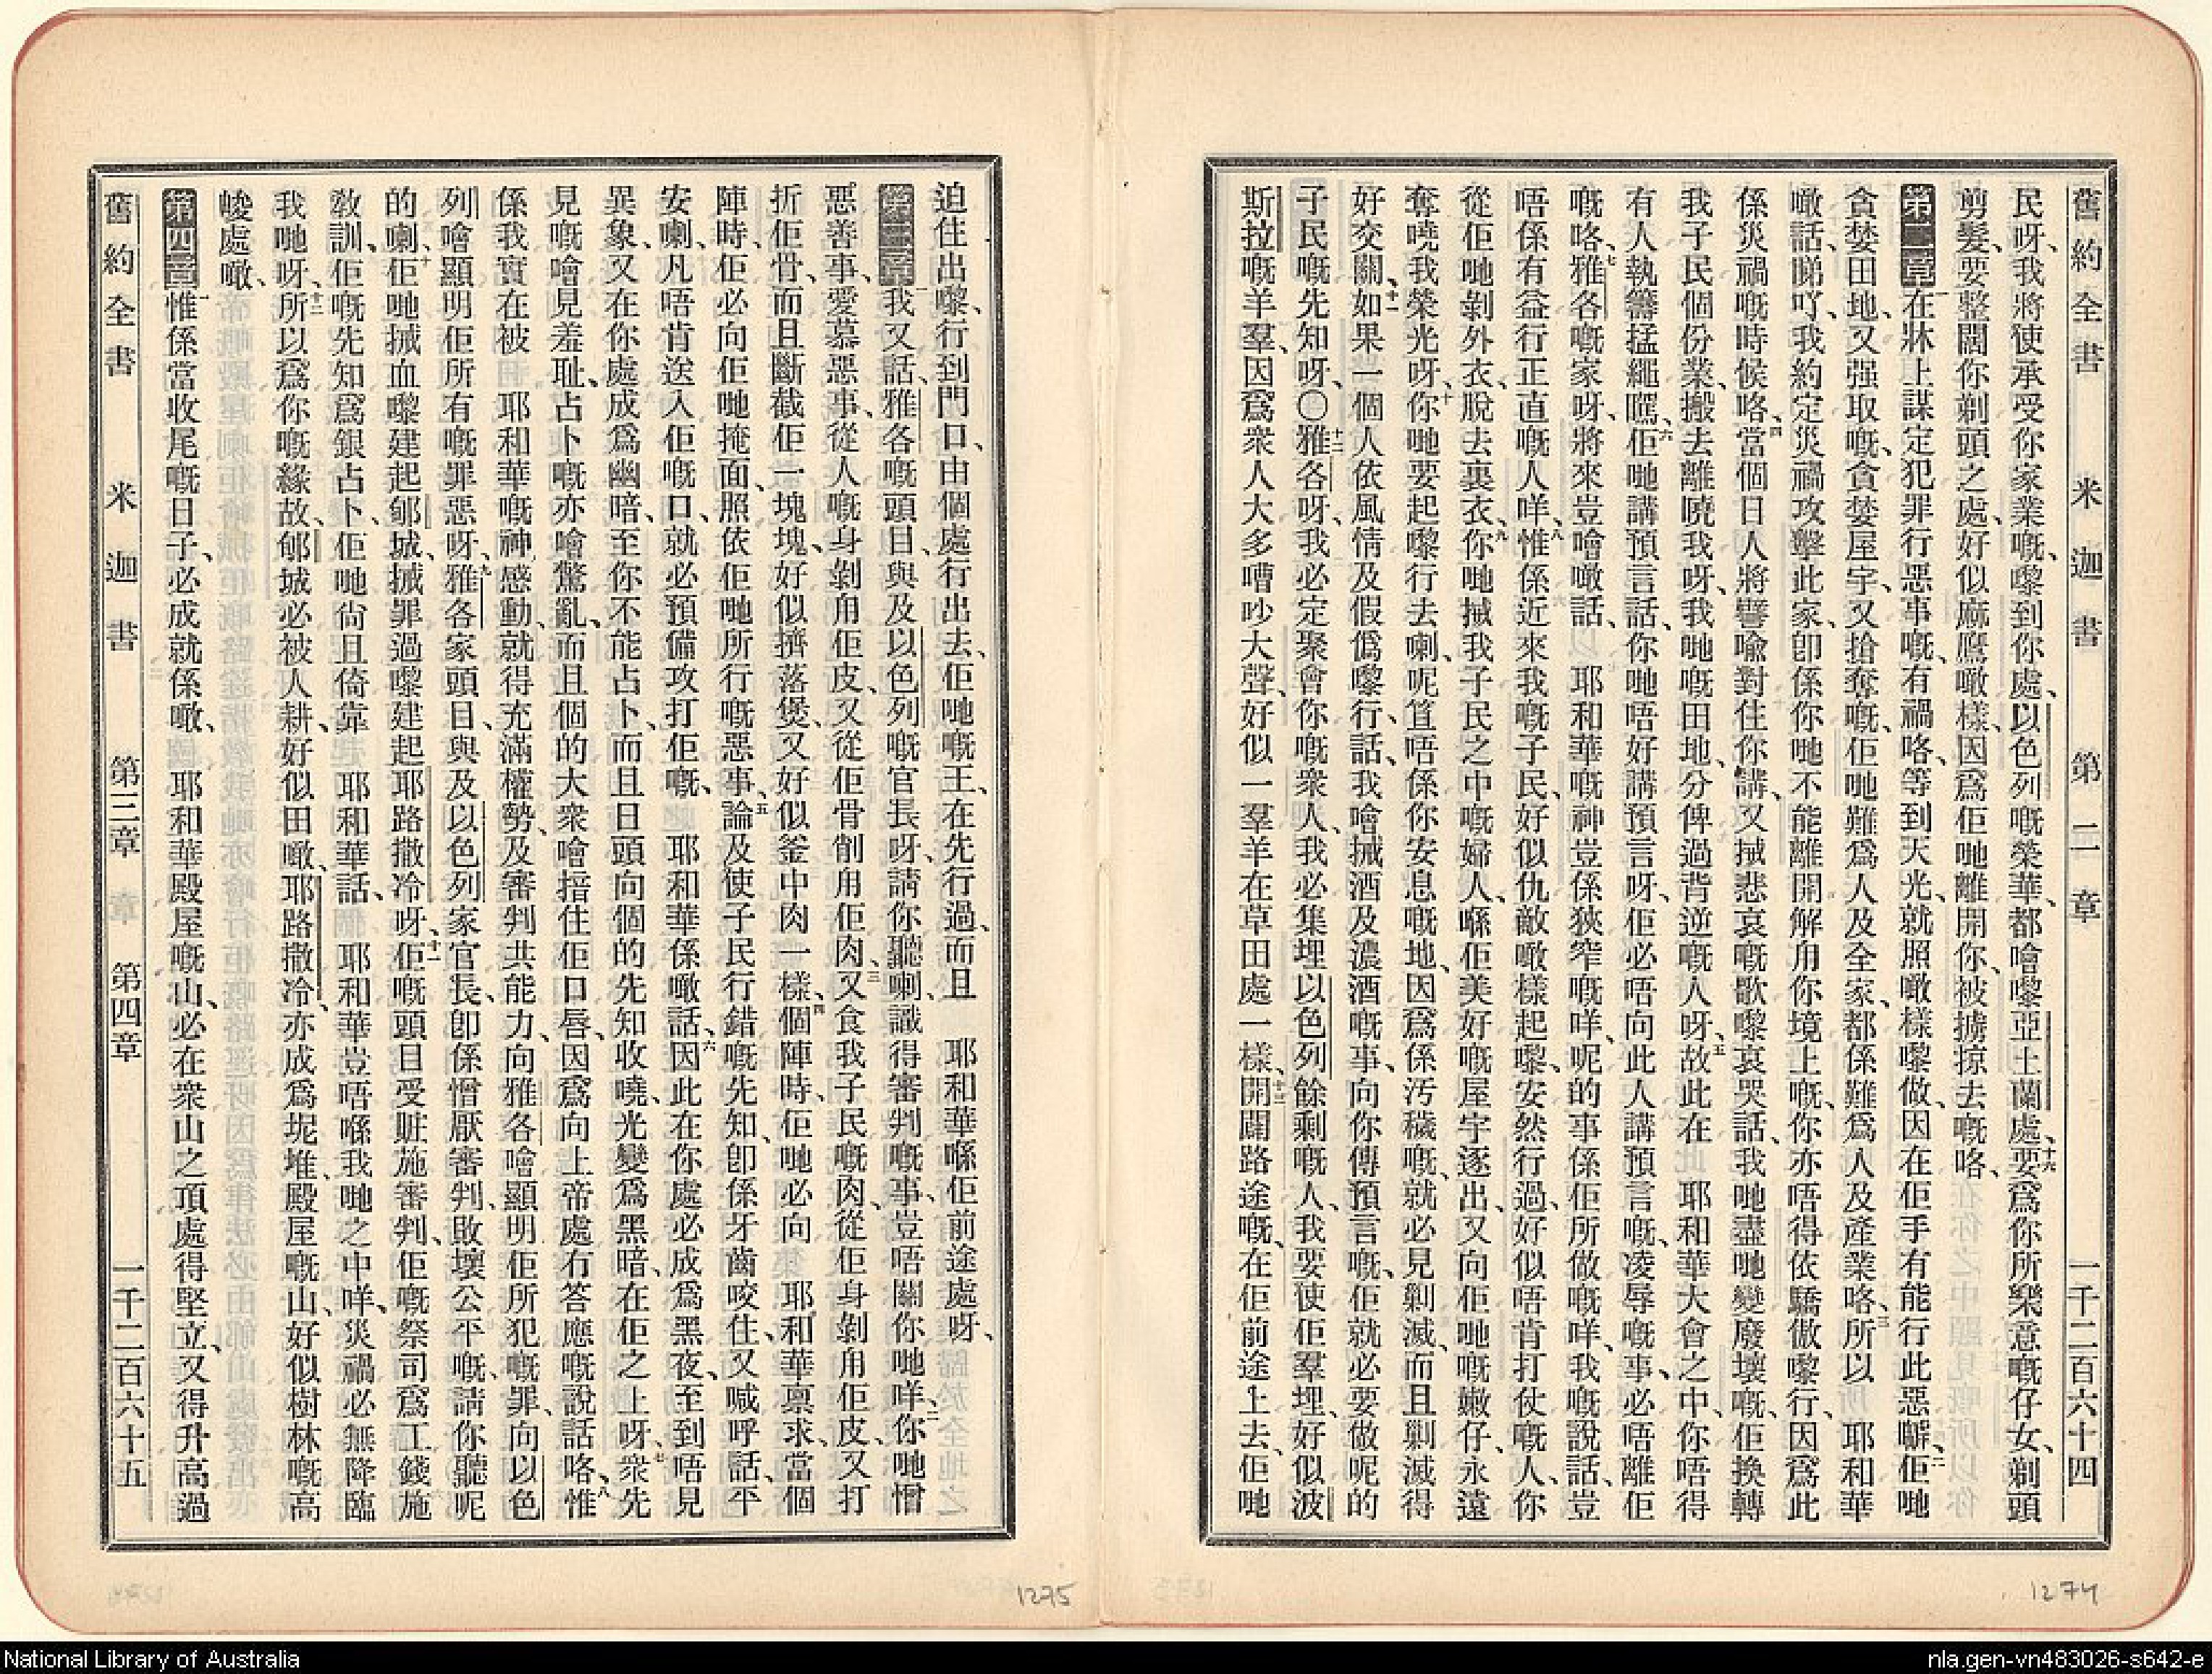 舊約全書 米迦書 第二章 一千二百六十四
民呀、我將使承受你家業嘅、嚟到你處、以色列嘅榮華、都噲嚟亞土蘭處、十六要爲你所樂意嘅仔女、剃頭
剪髮、要整闊你剃頭之處、好似麻鷹噉樣、因爲佢哋離開你、被擄掠去嘅咯、
第二章 一在牀上謀定犯罪行惡事嘅、有禍咯、等到天光、就照噉樣嚟做、因在佢手有能行此惡嘛、二佢哋
貪婪田地、又强取嘅、貪婪屋宇、又搶奪嘅、佢哋難爲人及全家、都係難爲人及產業咯、三所以 耶和華
噉話、睇吖、我約定災禍攻擊此家、卽係你哋不能離開解甪你境上嘅、你亦唔得依驕傲嚟行、因爲此
係災禍嘅時候咯、四當個日人將譬喻對住你講、又搣悲哀嘅歌嚟哀哭話、我哋盡哋變廢壞嘅、佢換轉
我子民個份業、搬去離曉我呀、我哋嘅田地、分俾過背逆嘅人呀、五故此在 耶和華大會之中、你唔得
有人執籌掹繩嚫、六佢哋講預言話、你哋唔好講預言呀、佢必唔向此人講預言嘅、凌辱嘅事、必唔離佢
嘅咯、七雅各嘅家呀、將來豈噲噉話、 耶和華嘅神豈係狹窄嘅咩、呢的事係佢所做嘅咩、我嘅說話、豈
唔係有益行正直嘅人咩、八惟係近來我嘅子民、好似仇敵噉樣起嚟、安然行過、好似唔肯打仗嘅人、你
從佢哋剝外衣、脫去裏衣、九你哋搣我子民之中嘅婦人、喺佢美好嘅屋宇逐出、又向佢哋嘅嫩仔、永遠
奪曉我榮光呀、十你哋要起嚟行去喇、呢笪唔係你安息嘅地、因爲係汚穢嘅、就必見剿滅、而且剿滅得
好交關、十一如果一個人依風情及假僞嚟行、話、我噲搣酒及濃酒嘅事、向你傳預言嘅、佢就必要做呢的
子民嘅先知呀、〇十二雅各呀、我必定聚會你嘅衆人、我必集埋以色列餘剩嘅人、我要使佢羣埋、好似波
斯拉嘅羊羣、因爲衆人大多嘈吵大聲、好似一羣羊在草田處一樣、十三開闢路途嘅、在佢前途上去、佢哋
迫住出嚟、行到門口、由個處行出去、佢哋嘅王、在先行過、而且 耶和華喺佢前途處呀、
第三章 一我又話、雅各嘅頭目、與及以色列嘅官長呀、請你聽喇、識得審判嘅事、豈唔關你哋咩、二你哋憎
惡善事、愛慕惡事、從人嘅身剝甪佢皮、又從佢骨削甪佢肉、三又食我子民嘅肉、從佢身剝甪佢皮、又打
折佢骨、而且斷截佢一塊塊、好似擠落煲、又好似釜中肉一樣、四個陣時、佢哋必向 耶和華禀求、當個
陣時、佢必向佢哋掩面、照依佢哋所行嘅惡事、五論及使子民行錯嘅先知、卽係牙齒咬住、又喊呼話、平
安喇、凡唔肯送入佢嘅口、就必預備攻打佢嘅、 耶和華係噉話、六因此在你處必成爲黑夜、至到唔見
異象、又在你處成爲幽暗、至你不能占卜、而且日頭向個的先知收曉、光變爲黑暗、在佢之上呀、七衆先
見嘅噲見羞恥、占卜嘅亦噲驚亂、而且個的大衆噲揞住佢口唇、因爲向上帝處冇答應嘅說話咯、八惟
係我實在被 耶和華嘅神感動、就得充滿權勢、及審判共能力、向雅各噲顯明佢所犯嘅罪、向以色
列噲顯明佢所有嘅罪惡呀、九雅各家頭目、與及以色列家官長、卽係憎厭審判、敗壞公平嘅、請你聽呢
的喇、十佢哋搣血嚟建起郇城、搣罪過嚟建起耶路撒冷呀、十一佢嘅頭目受賍施審判、佢嘅祭司爲工錢施
敎訓、佢嘅先知爲銀占卜、佢哋尙且倚靠 耶和華話、 耶和華豈唔喺我哋之中咩、災禍必無降臨
我哋呀、十二所以爲你嘅緣故、郇城必被人耕、好似田噉、耶路撒冷、亦成爲坭堆、殿屋嘅山、好似樹林嘅高
峻處噉、
第四章 一惟係當收尾嘅日子、必成就係噉、 耶和華殿屋嘅山、必在衆山之頂處得堅立、又得升高過
舊約全書 米迦書 第三章 章 第四章 一千二百六十五
1275
1274
National Library of Australia
nla.gen-vn483026-s642-e